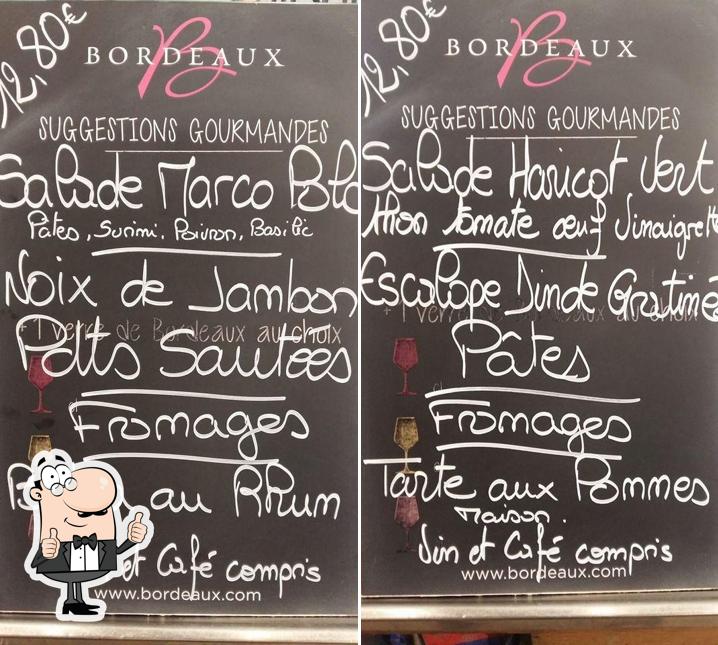 12,80€
BORDEAUX
SUGGESTIONS GOURMANDES
Salade Marco Polo
Pâtes, Surimi, Poivron, Basilic
Noix de Jambon
+ 1 verre de Bordeaux au choix
Pdts Sautées
Fromages
au Rhum
et Café compris
www.bordeaux.com
12,80€
BORDEAUX
SUGGESTIONS GOURMANDES
Salade Haricot Vert
thon tomate œuf Vinaigrette
Escalope Dinde Gratinée
+ 1 verre de Bordeaux au choix
Pâtes
Fromages
Tarte aux Pommes
Maison.
Vin et Café compris
www.bordeaux.com